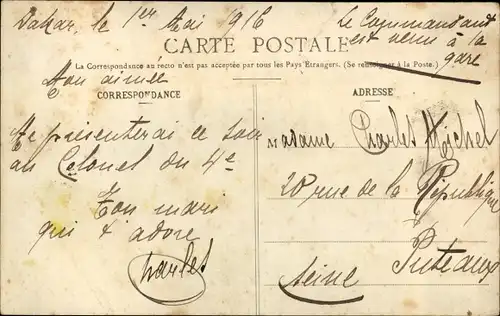 Dakar, le 1er Mai 1916
Le Commandant
est venu à la
gare
CARTE POSTALE
La Correspondance au recto n'est pas acceptée par tous les Pays Étrangers. (Se renseigner à la Poste.)
Mon aimée
CORRESPONDANCE
Me présenterai ce soir
au Colonel du 4e
Ton mari
qui t'adore
Charles
ADRESSE
Madame Charles Michel
28 rue de la République
Puteaux
Seine